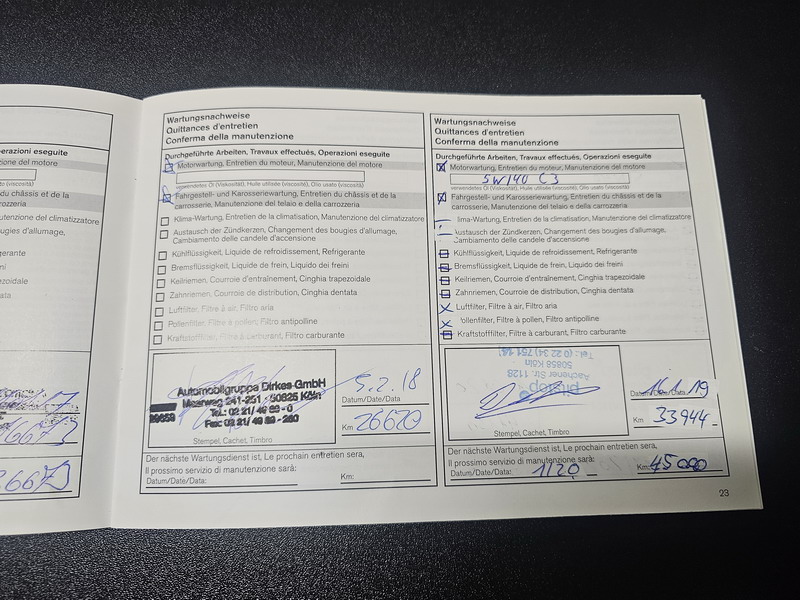 perazioni eseguite
zione del motore
(viscosità)
du châssis et de la
rozzeria
utenzione del climatizzatore
bougies d'allumage,
Refrigerante
freini
trapezoidale
data
Wartungsnachweise
Quittances d'entretien
Conferma della manutenzione
Durchgeführte Arbeiten, Travaux effectués, Operazioni eseguite
Motorwartung, Entretien du moteur, Manutenzione del motore
verwendetes Öl (Viskosität), Huile utilisée (viscosité), Olio usato (viscosità)
Fahrgestell- und Karosseriewartung, Entretien du châssis et de la
carrosserie, Manutenzione del telaio e della carrozzeria
Klima-Wartung, Entretien de la climatisation, Manutenzione del climatizzatore
Austausch der Zündkerzen, Changement des bougies d'allumage,
Cambiamento delle candele d'accensione
Kühlflüssigkeit, Liquide de refroidissement, Refrigerante
Bremsflüssigkeit, Liquide de frein, Liquido dei freini
Keilriemen, Courroie d'entraînement, Cinghia trapezoidale
Zahnriemen, Courroie de distribution, Cinghia dentata
Luftfilter, Filtre à air, Filtro aria
Pollenfilter, Filtre à pollen, Filtro antipolline
Kraftstofffilter, Filtre à carburant, Filtro carburante
Automobilgruppe Dirkes GmbH
241-251 · 50825 Köln
Tel.: 02 21/ 49 89 - 0
Fax: 02 21/ 49 89 - 260
5.2.18
Datum/Date/Data
Km 26620
Stempel, Cachet, Timbro
Der nächste Wartungsdienst ist, Le prochain entretien sera,
Il prossimo servizio di manutenzione sarà:
Datum/Date/Data:
Km:
Wartungsnachweise
Quittances d'entretien
Conferma della manutenzione
Durchgeführte Arbeiten, Travaux effectués, Operazioni eseguite
Motorwartung, Entretien du moteur, Manutenzione del motore
5W40 C3
verwendetes Öl (Viskosität), Huile utilisée (viscosité), Olio usato (viscosità)
Fahrgestell- und Karosseriewartung, Entretien du châssis et de la
carrosserie, Manutenzione del telaio e della carrozzeria
lima-Wartung, Entretien de la climatisation, Manutenzione del climatizzatore
Austausch der Zündkerzen, Changement des bougies d'allumage,
Cambiamento delle candele d'accensione
Kühlflüssigkeit, Liquide de refroidissement, Refrigerante
Bremsflüssigkeit, Liquide de frein, Liquido dei freini
Keilriemen, Courroie d'entraînement, Cinghia trapezoidale
Zahnriemen, Courroie de distribution, Cinghia dentata
Luftfilter, Filtre à air, Filtro aria
Pollenfilter, Filtre à pollen, Filtro antipolline
Kraftstofffilter, Filtre à carburant, Filtro carburante
pitstop
Aachener Str. 1128
50858 Köln
Tel.: (0 22 34)
Datum/Date/Data
Km 33944-
Stempel, Cachet, Timbro
Der nächste Wartungsdienst ist, Le prochain entretien sera,
Il prossimo servizio di manutenzione sarà:
Datum/Date/Data: 1/20
Km: 45000
23